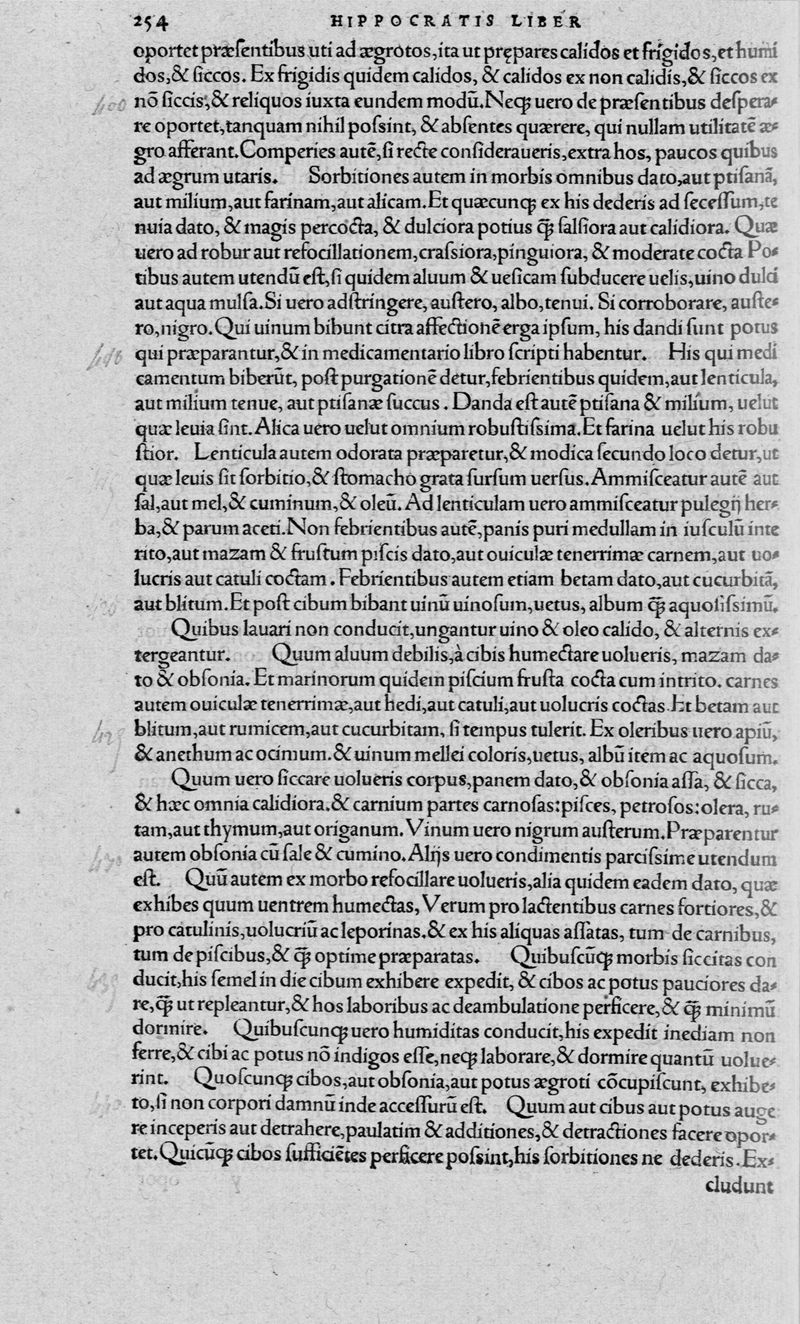 254 HIPPOCRATIS LIBER
oportet præſentibus uti ad ægrotos, ita ut prępares calidos et frigidos, et humi
dos, & ſiccos. Ex frigidis quidem calidos, & calidos ex non calidis, & ſiccos ex
nō ſiccis, & reliquos iuxta eundem modū. Neqꝫ uero de præſentibus deſpera⸗
re oportet, tanquam nihil poſsint, & abſentes quærere, qui nullam utilitatē æ⸗
gro afferant. Comperies autē, ſi recte conſideraueris, extra hos, paucos quibus
ad ægrum utaris. Sorbitiones autem in morbis omnibus dato, aut ptiſanā,
aut milium, aut farinam, aut alicam. Et quæcunqꝫ ex his dederis ad ſeceſſum, te
nuia dato, & magis percocta, & dulciora potius ꝗ̃ ſalſiora aut calidiora. Quæ
uero ad robur aut refocillationem, craſsiora, pinguiora, & moderate cocta Po⸗
tibus autem utendū eſt, ſi quidem aluum & ueſicam ſubducere uelis, uino dulci
aut aqua mulſa. Si uero adſtringere, auſtero, albo, tenui. Si corroborare, auſte⸗
ro, nigro. Qui uinum bibunt citra affectionē erga ipſum, his dandi ſunt potus
qui præparantur, & in medicamentario libro ſcripti habentur. His qui medi
camentum biberūt, poſt purgationē detur, febrientibus quidem, aut lenticula,
aut milium tenue, aut ptiſanæ ſuccus. Danda eſt autē ptiſana & milium, uelut
quæ leuia ſint. Alica uero uelut omnium robuſtiſsima. Et farina uelut his robu
ſtior. Lenticula autem odorata præparetur, & modica ſecundo loco detur, ut
quæ leuis ſit ſorbitio, & ſtomacho grata ſurſum uerſus. Ammiſceatur autē aut
ſal, aut mel, & cuminum, & oleū. Ad lenticulam uero ammiſceatur pulegij her⸗
ba, & parum aceti. Non febrientibus autē, panis puri medullam in iuſculū inte
rito, aut mazam & fruſtum piſcis dato, aut ouiculæ tenerrimæ carnem, aut uo⸗
lucris aut catuli coctam. Febrientibus autem etiam betam dato, aut cucurbitā,
aut blitum. Et poſt cibum bibant uinū uinoſum, uetus, album ꝗ̃ aquoſiſsimū.
Quibus lauari non conducit, ungantur uino & oleo calido, & alternis ex⸗
tergeantur. Quum aluum debilis, à cibis humectare uolueris, mazam da⸗
to & obſonia. Et marinorum quidem piſcium fruſta cocta cum intrito. carnes
autem ouiculæ tenerrimæ, aut hedi, aut catuli, aut uolucris coctas. Et betam aut
blitum, aut rumicem, aut cucurbitam, ſi tempus tulerit. Ex oleribus uero apiū,
& anethum ac ocimum. & uinum mellei coloris, uetus, albū item ac aquoſum.
Quum uero ſiccare uolueris corpus, panem dato, & obſonia aſſa, & ſicca,
& hæc omnia calidiora. & carnium partes carnoſas: piſces, petroſos: olera, ru⸗
tam, aut thymum, aut origanum. Vinum uero nigrum auſterum. Præparentur
autem obſonia cū ſale & cumino. Alijs uero condimentis parciſsime utendum
eſt. Quū autem ex morbo refocillare uolueris, alia quidem eadem dato, quæ
exhibes quum uentrem humectas, Verum pro lactentibus carnes fortiores, &
pro catulinis, uolucriū ac leporinas. & ex his aliquas aſſatas, tum de carnibus,
tum de piſcibus, & ꝗ̃ optime præparatas. Quibuſcūqꝫ morbis ſiccitas con
ducit, his ſemel in die cibum exhibere expedit, & cibos ac potus pauciores da⸗
re, ꝗ̃ ut repleantur, & hos laboribus ac deambulatione perficere, & ꝗ̃ minimū
dormire. Quibuſcunqꝫ uero humiditas conducit, his expedit inediam non
ferre, & cibi ac potus nō indigos eſſe, neqꝫ laborare, & dormire quantū uolue⸗
rint. Quoſcunqꝫ cibos, aut obſonia, aut potus ægroti cōcupiſcunt, exhibe⸗
to, ſi non corpori damnū inde acceſſurū eſt. Quum aut cibus aut potus auge
re inceperis aut detrahere, paulatim & additiones, & detractiones facere opor⸗
tet. Quicūqꝫ cibos ſufficiētes perficere poſsint, his ſorbitiones ne dederis. Ex⸗
cludunt